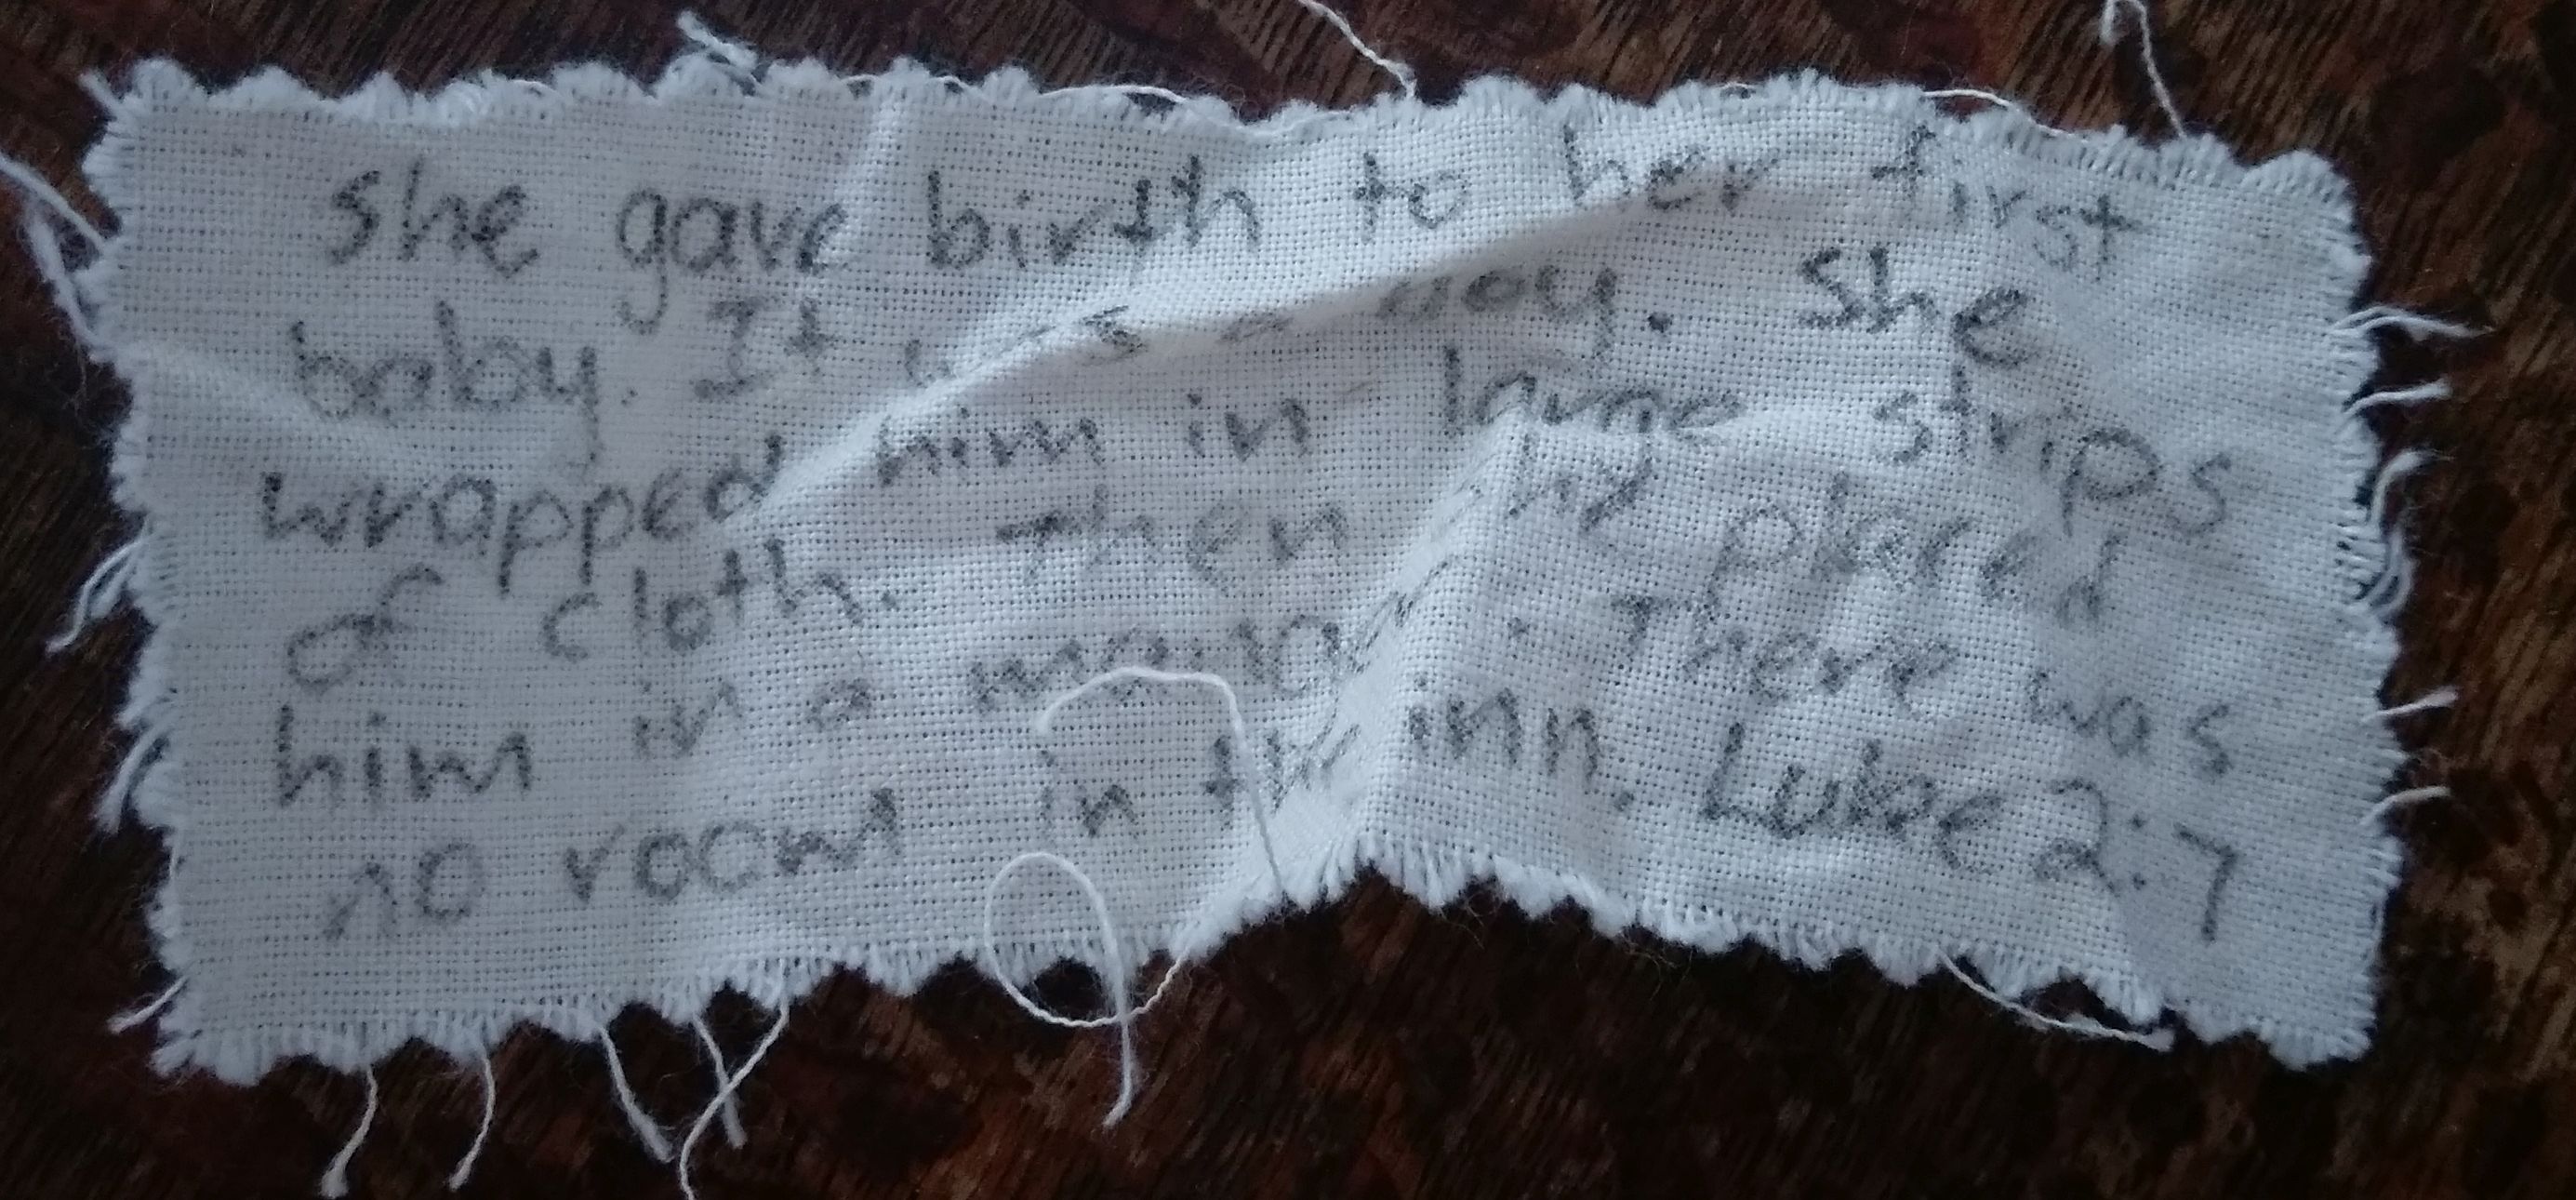 she gave birth to her first
baby. It was a boy. She
wrapped him in large strips
of cloth. Then he placed
him in a There was
no room in the inn. Luke 2:7